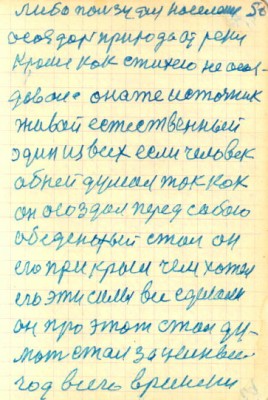 либо ползутся население 56
создает природа от реки
Кроме как стихею не созд-
давало она те источник
живой естественный
один из всех если человек
об ней думал так как
он создал перед собою
обеденный стол он
его прикрыл чем хотел
его эти силы все сделали
он про этот стол ду-
мат стал за целый
год всего времени